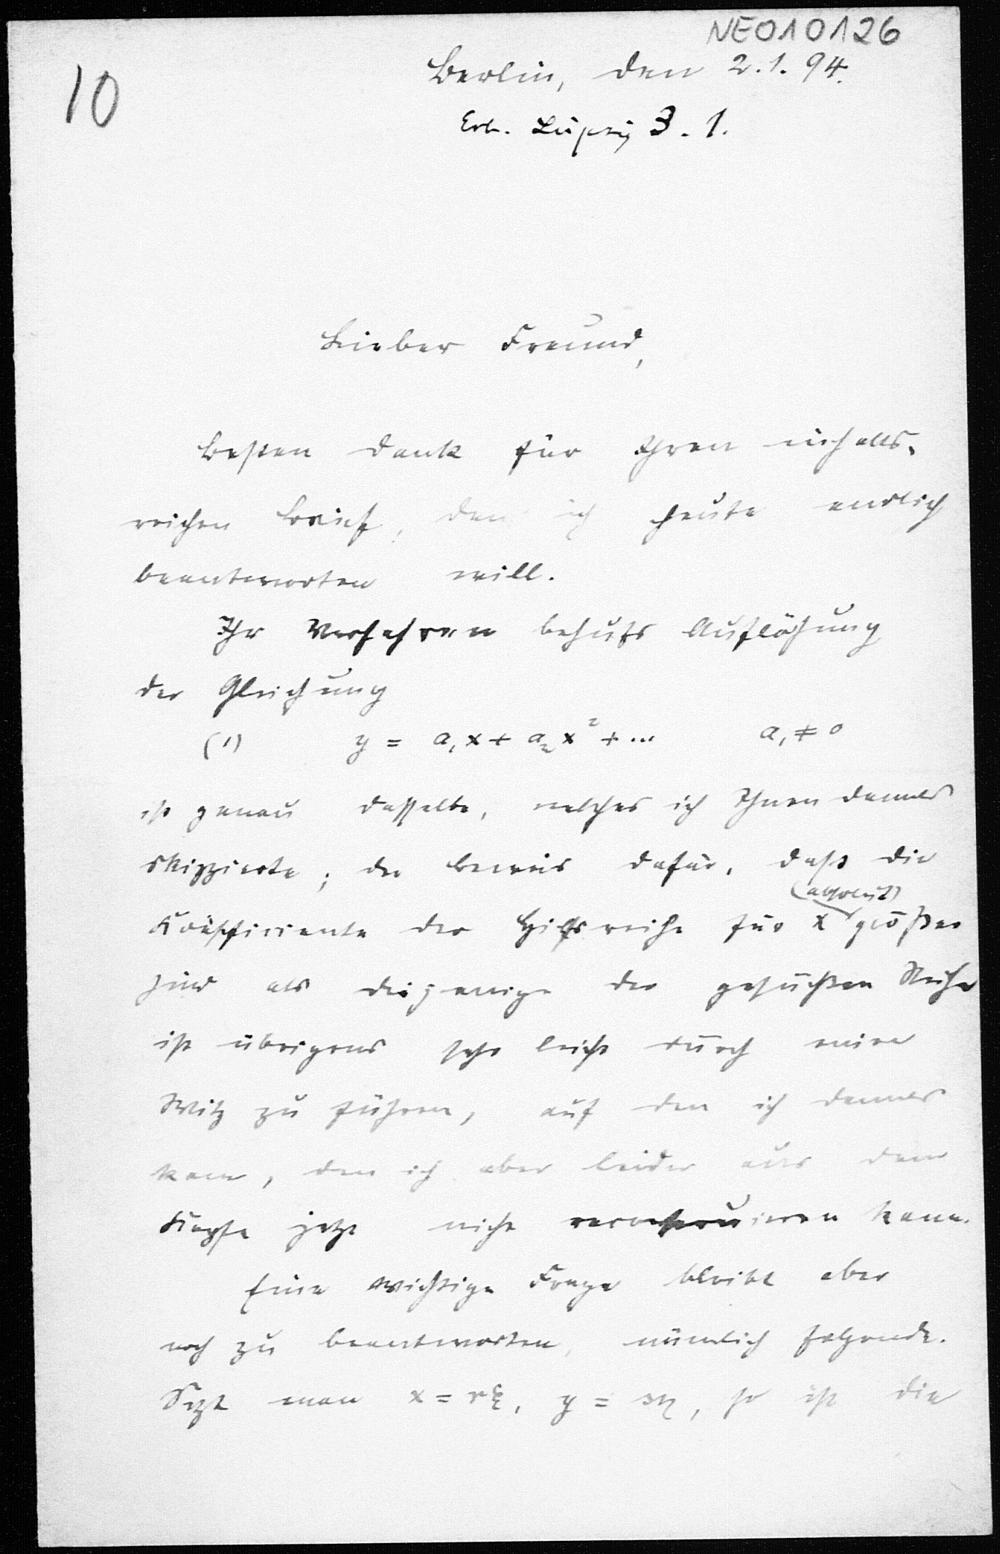 NE010126
10
Berlin, den 2.1.94.
Erh. Leipzig 3.1.
Lieber Freund,
Besten Dank für Ihren inhalts-
reichen Brief, den ich heute endlich
beantworten will.
Ihr Verfahren behufs Auflösung
der Gleichung
(1) y = a₁x + a₂x² + ... a₁ ≠ 0
ist genau dasselbe, welches ich Ihnen damals
skizzierte; der Beweis dafür, daß die
(absolut)
Koëfficiente der Hilfsreihe für x größer
sind als diejenige der gesuchten Reihe
ist übrigens sehr leicht durch einen
Witz zu führen, auf den ich damals
kam, den ich aber leider aus dem
Kopfe jetzt nicht reconstruieren kann.
Eine wichtige Frage bleibt aber
noch zu beantworten, nämlich folgende.
Setzt man x = rξ, y = sη, so ist die